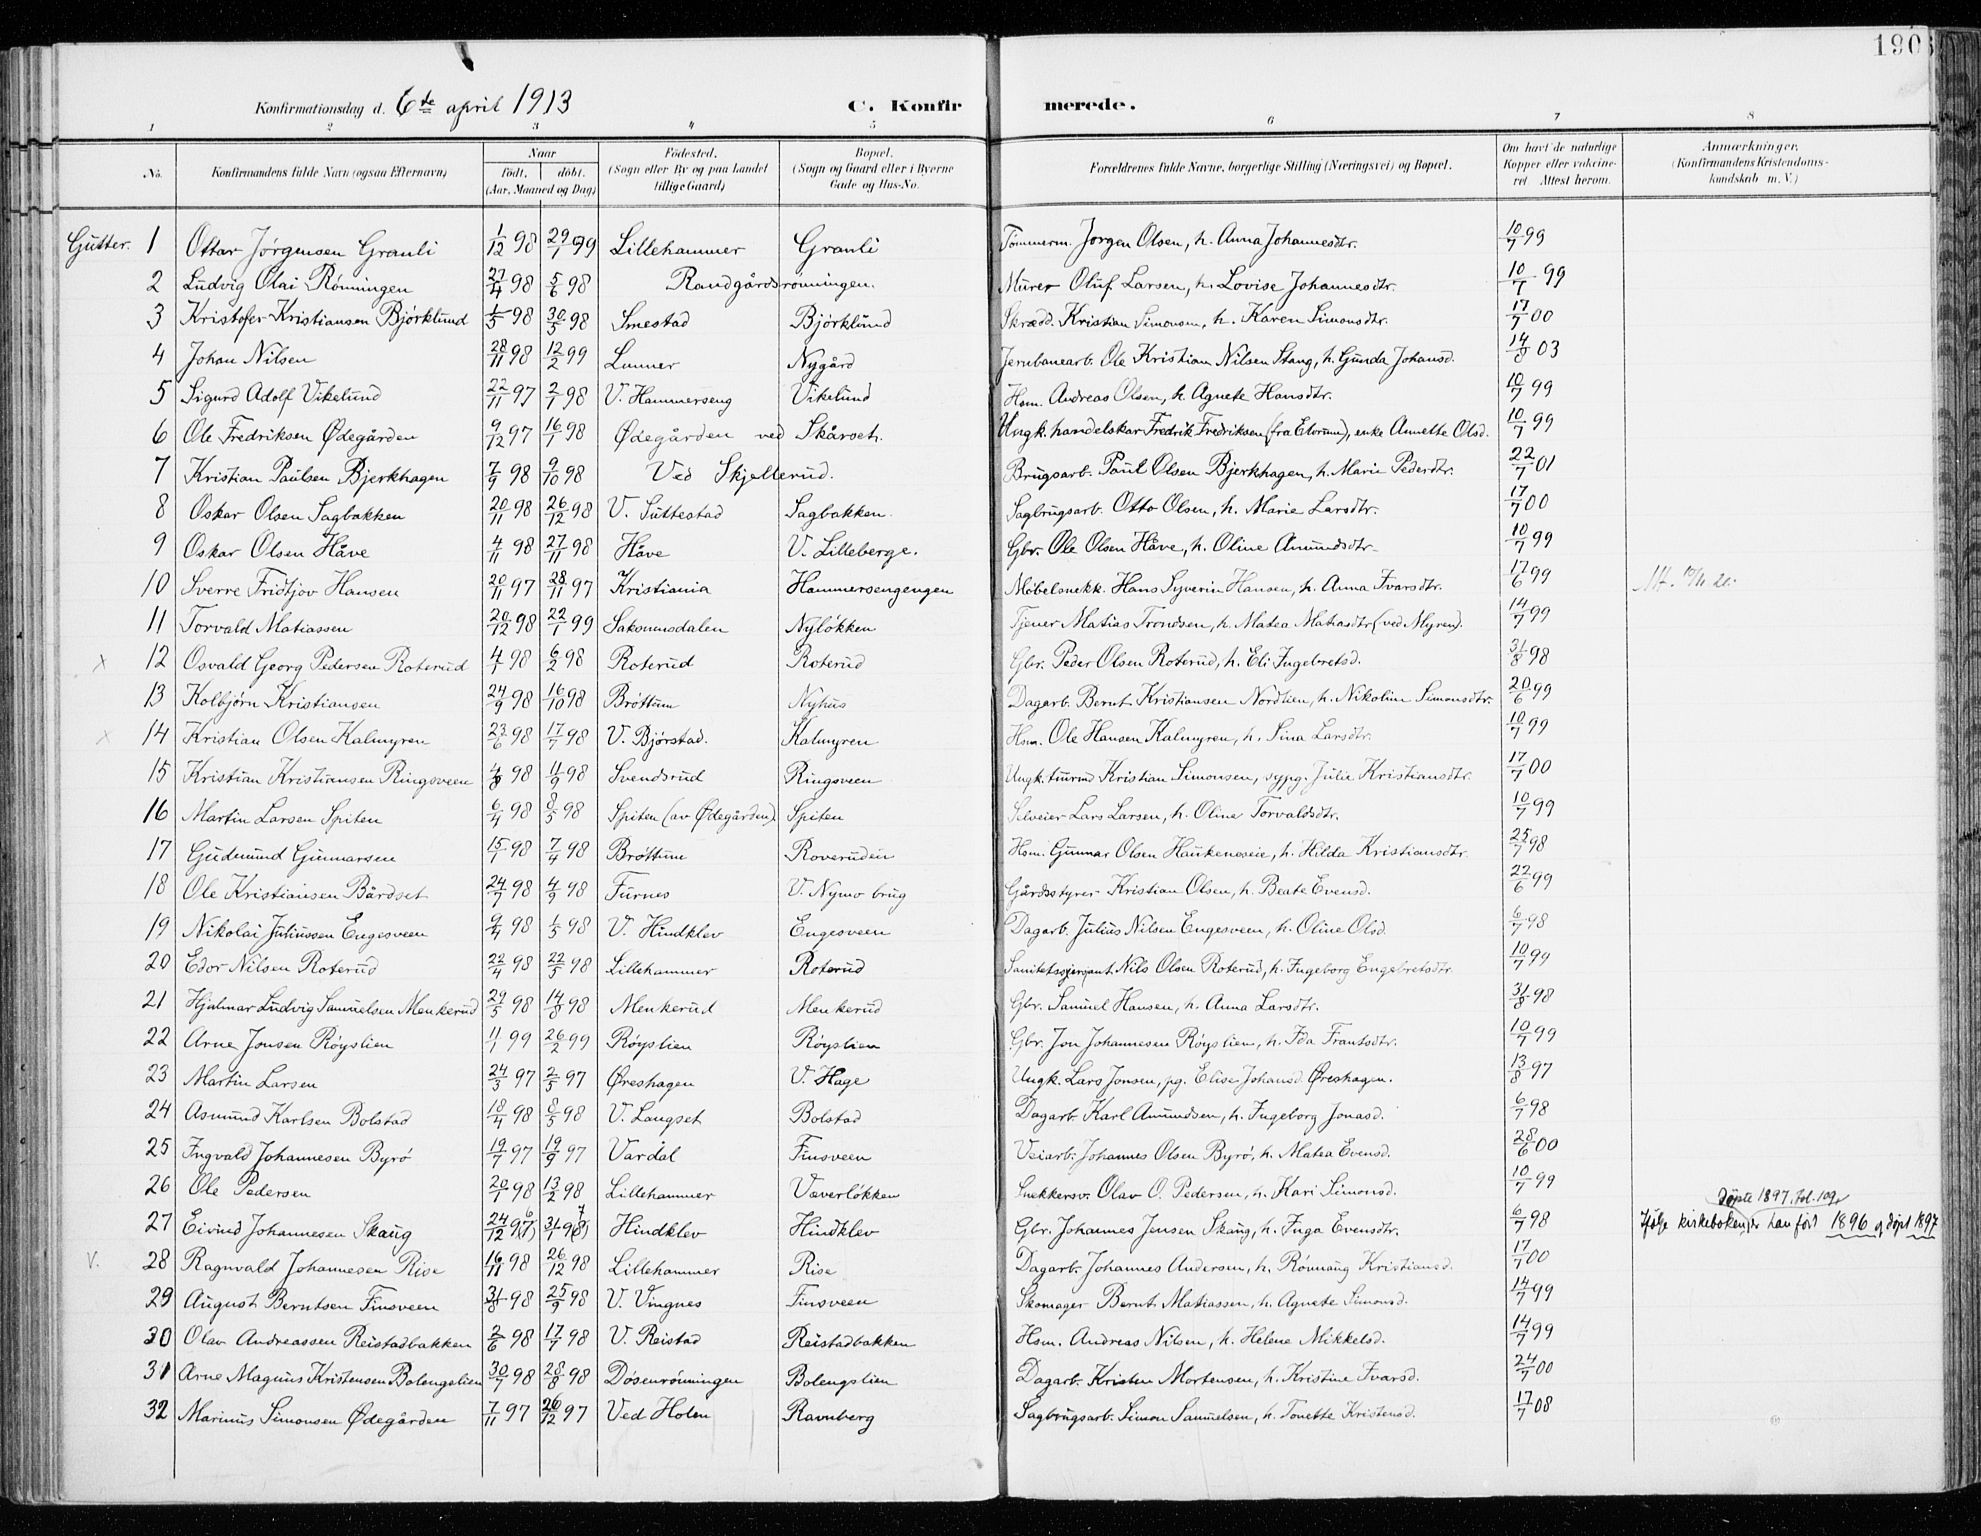 190
Konfirmationsdag d. 6te april 1913 C. Konfirmerede.
1 2 3 4 5 6 7 8
No. Konfirmandens fulde Navn (ogsaa Efternavn) Naar født. døbt. (Aar, Maaned og Dag) Fødested. (Sogn eller By og paa Landet tillige Gaard) Bopæl. (Sogn og Gaard eller i Byerne Gade og Hus-No. Forældrenes fulde Navne, borgerlige Stilling (Næringsvei) og Bopæl. Om havt de naturlige Kopper eller vaksineret Attest herom. Anmærkninger. (Konfirmandens Kristendomskundskab m. V.)
Gutter. 1 Ottar Jörgensen Granli 1/12 98 29/1 99 Lillehammer Granli Tømmerm. Jørgen Olsen, h. Anna Johannesdtr. 10/7 99
2 Ludvig Olai Rönningen 27/4 98 5/6 98 Randgårdsrønningen. Murer Oluf Larsen, h. Lovise Johannesdtr. 10/7 99
3 Kristofer Kristiansen Björklund 1/5 98 30/5 98 Smestad Björklund Skrædd. Kristian Simonsen, h. Karen Simonsdtr. 17/7 00
4 Johan Nilsen 28/11 98 12/2 99 Lunner Nygård Jernbanearb. Ole Kristian Nilsen Stang, h. Gunda Johansd. 14/8 03
5 Sigurd Adolf Vikelund 22/11 97 2/1 98 V. Hammerseng Vikelund Hsm. Andreas Olsen, h. Agnete Hansdtr. 10/7 99
6 Ole Fredriksen Ødegården 9/12 97 16/1 98 Ødegården ved Skårset. Ungk. handelskar Fredrik Fredriksen (fra Elverum), enke Annette Olsd. 10/7 99
7 Kristian Paulsen Bjerkhagen 7/9 98 9/10 98 Ved Skjellerud. Brugsarb. Paul Olsen Bjerkhagen, h. Marie Pedersdtr. 22/7 01
8 Oskar Olsen Sagbakken 20/11 98 26/12 98 V. Suttestad Sagbakken. Sagbrugsarb. Otto Olsen, h. Marie Larsdtr. 17/7 00
9 Oskar Olsen Håve 4/11 98 27/11 98 Håve V. Lilleberge. Gbr. Ole Olsen Håve, h. Oline Amundsdtr. 10/7 99
10 Sverre Fridtjov Hansen 20/11 97 28/11 97 Kristiania Hammersengengen Møbelsnekk. Hans Syverin Hansen, h. Anna Ivarsdtr. 17/6 99
11 Torvald Matiassen 20/12 98 22/1 99 Saksumsdalen Nyløkken Tjener Matias Trondsen, h. Matea Matiasdtr (ved Myren). 14/7 99
x 12 Osvald Georg Pedersen Roterud 4/1 98 6/2 98 Roterud Roterud Gbr. Peder Olsen Roterud, h. Eli Ingebretsd. 31/8 98
13 Kolbjørn Kristiansen 24/9 98 16/10 98 Brøttum Nyhus Dagarb. Bernt Kristiansen Nordlien, h. Nikoline Simonsdtr. 20/6 99
x 14 Kristian Olsen Kalmyren 23/6 98 17/7 98 V. Bjørstad. Kalmyren Hsm. Ole Hansen Kalmyren, h. Sina Larsdtr. 10/7 99
15 Kristian Kristiansen Ringsveen 4/8 98 11/9 98 Svendsrud Ringsveen Ungk. Kristian Simonsen, sypg. Julie Kristiansdtr. 17/7 00
16 Martin Larsen Spiten 6/4 98 8/5 98 Spiten (av Ødegården) Spiten Selveier Lars Larsen, h. Oline Torvaldsdtr. 10/7 99
17 Gudmund Gunnarsen 15/1 98 7/4 98 Brøttum Roveruden Hsm. Gunnar Olsen Haukeneseie, h. Hilda Kristiansdtr. 25/7 98
18 Ole Kristiansen Bårdset 24/7 98 4/9 98 Furnes V. Nymo brug Gårdsstyrer Kristian Olsen, h. Beate Evensd. 22/6 99
19 Nikolai Juliussen Engesveen 9/4 98 1/5 98 V. Hindklev Engesveen Dagarb. Julius Nilsen Engesveen, h. Oline Olsd. 6/7 98
20 Edor Nilsen Roterud 22/4 98 22/5 98 Lillehammer Roterud Sanitetssersjant Nils Olsen Roterud, h. Ingeborg Engebretsdtr. 10/7 99
21 Hjalmar Ludvig Samuelsen Menkerud 29/5 98 14/8 98 Menkerud Menkerud Gbr. Samuel Hansen, h. Anna Larsdtr. 31/8 98
22 Arne Jonsen Röyslien 11/1 99 26/2 99 Röyslien Röyslien Gbr. Jon Johannesen Röyslien, h. Ida Frantsdtr. 10/7 99
23 Martin Larsen 24/3 97 2/5 97 Øreshagen V. Hage Ungk. Lars Jonsen, pg. Elise Johansd. Øreshagen. 13/8 97
24 Asmund Karlsen Bolstad 18/4 98 8/5 98 V. Langset Bolstad Dagarb. Karl Amundsen, h. Ingeborg Jonasd. 6/7 98
25 Ingvald Johannesen Byrö 19/7 97 19/9 97 Vardal Finsveen Veiarb. Johannes Olsen Byrö, h. Matea Evensd. 28/6 00
26 Ole Pedersen 20/1 98 13/2 98 Lillehammer Væverløkken Snekkersv. Olav O. Pedersen, h. Kari Simonsd. 10/7 99
27 Eivind Johannesen Skaug 24/12 9(7) 6 31/1 9(8) 7 Hindklev Hindklev Gbr. Johannes Jensen Skaug, h. Inga Evensdtr. 6/7 98 Ifölge kirkeboken, döpte 1897, fol. 109, er han født 1896 og döpt 1897
v. 28 Ragnvald Johannesen Rise 16/11 98 26/12 98 Lillehammer Rise Dagarb. Johannes Andersen, h. Rönnaug Kristiansd. 17/7 00
29 August Berntsen Finsveen 31/8 98 25/9 98 V. Vingnes Finsveen Skomager Bernt Matiassen, h. Agnete Simonsd. 14/7 99
30 Olav Andreassen Reistadbakken 2/6 98 17/7 98 V. Reistad Reistadbakken Hsm. Andreas Nilsen, h. Helene Mikkelsd. 14/7 99
31 Arne Magnus Kristensen Bolengslien 30/7 98 28/8 98 Dösenrönningen Bolengslien Dagarb. Kristen Mortensen, h. Kristine Ivarsd. 24/7 00
32 Marinus Simonsen Ødegården 7/11 97 26/12 97 Ved Holen Ravnberg Sagbrugsarb. Simon Samuelsen, h. Tonette Kristensd. 17/7 08